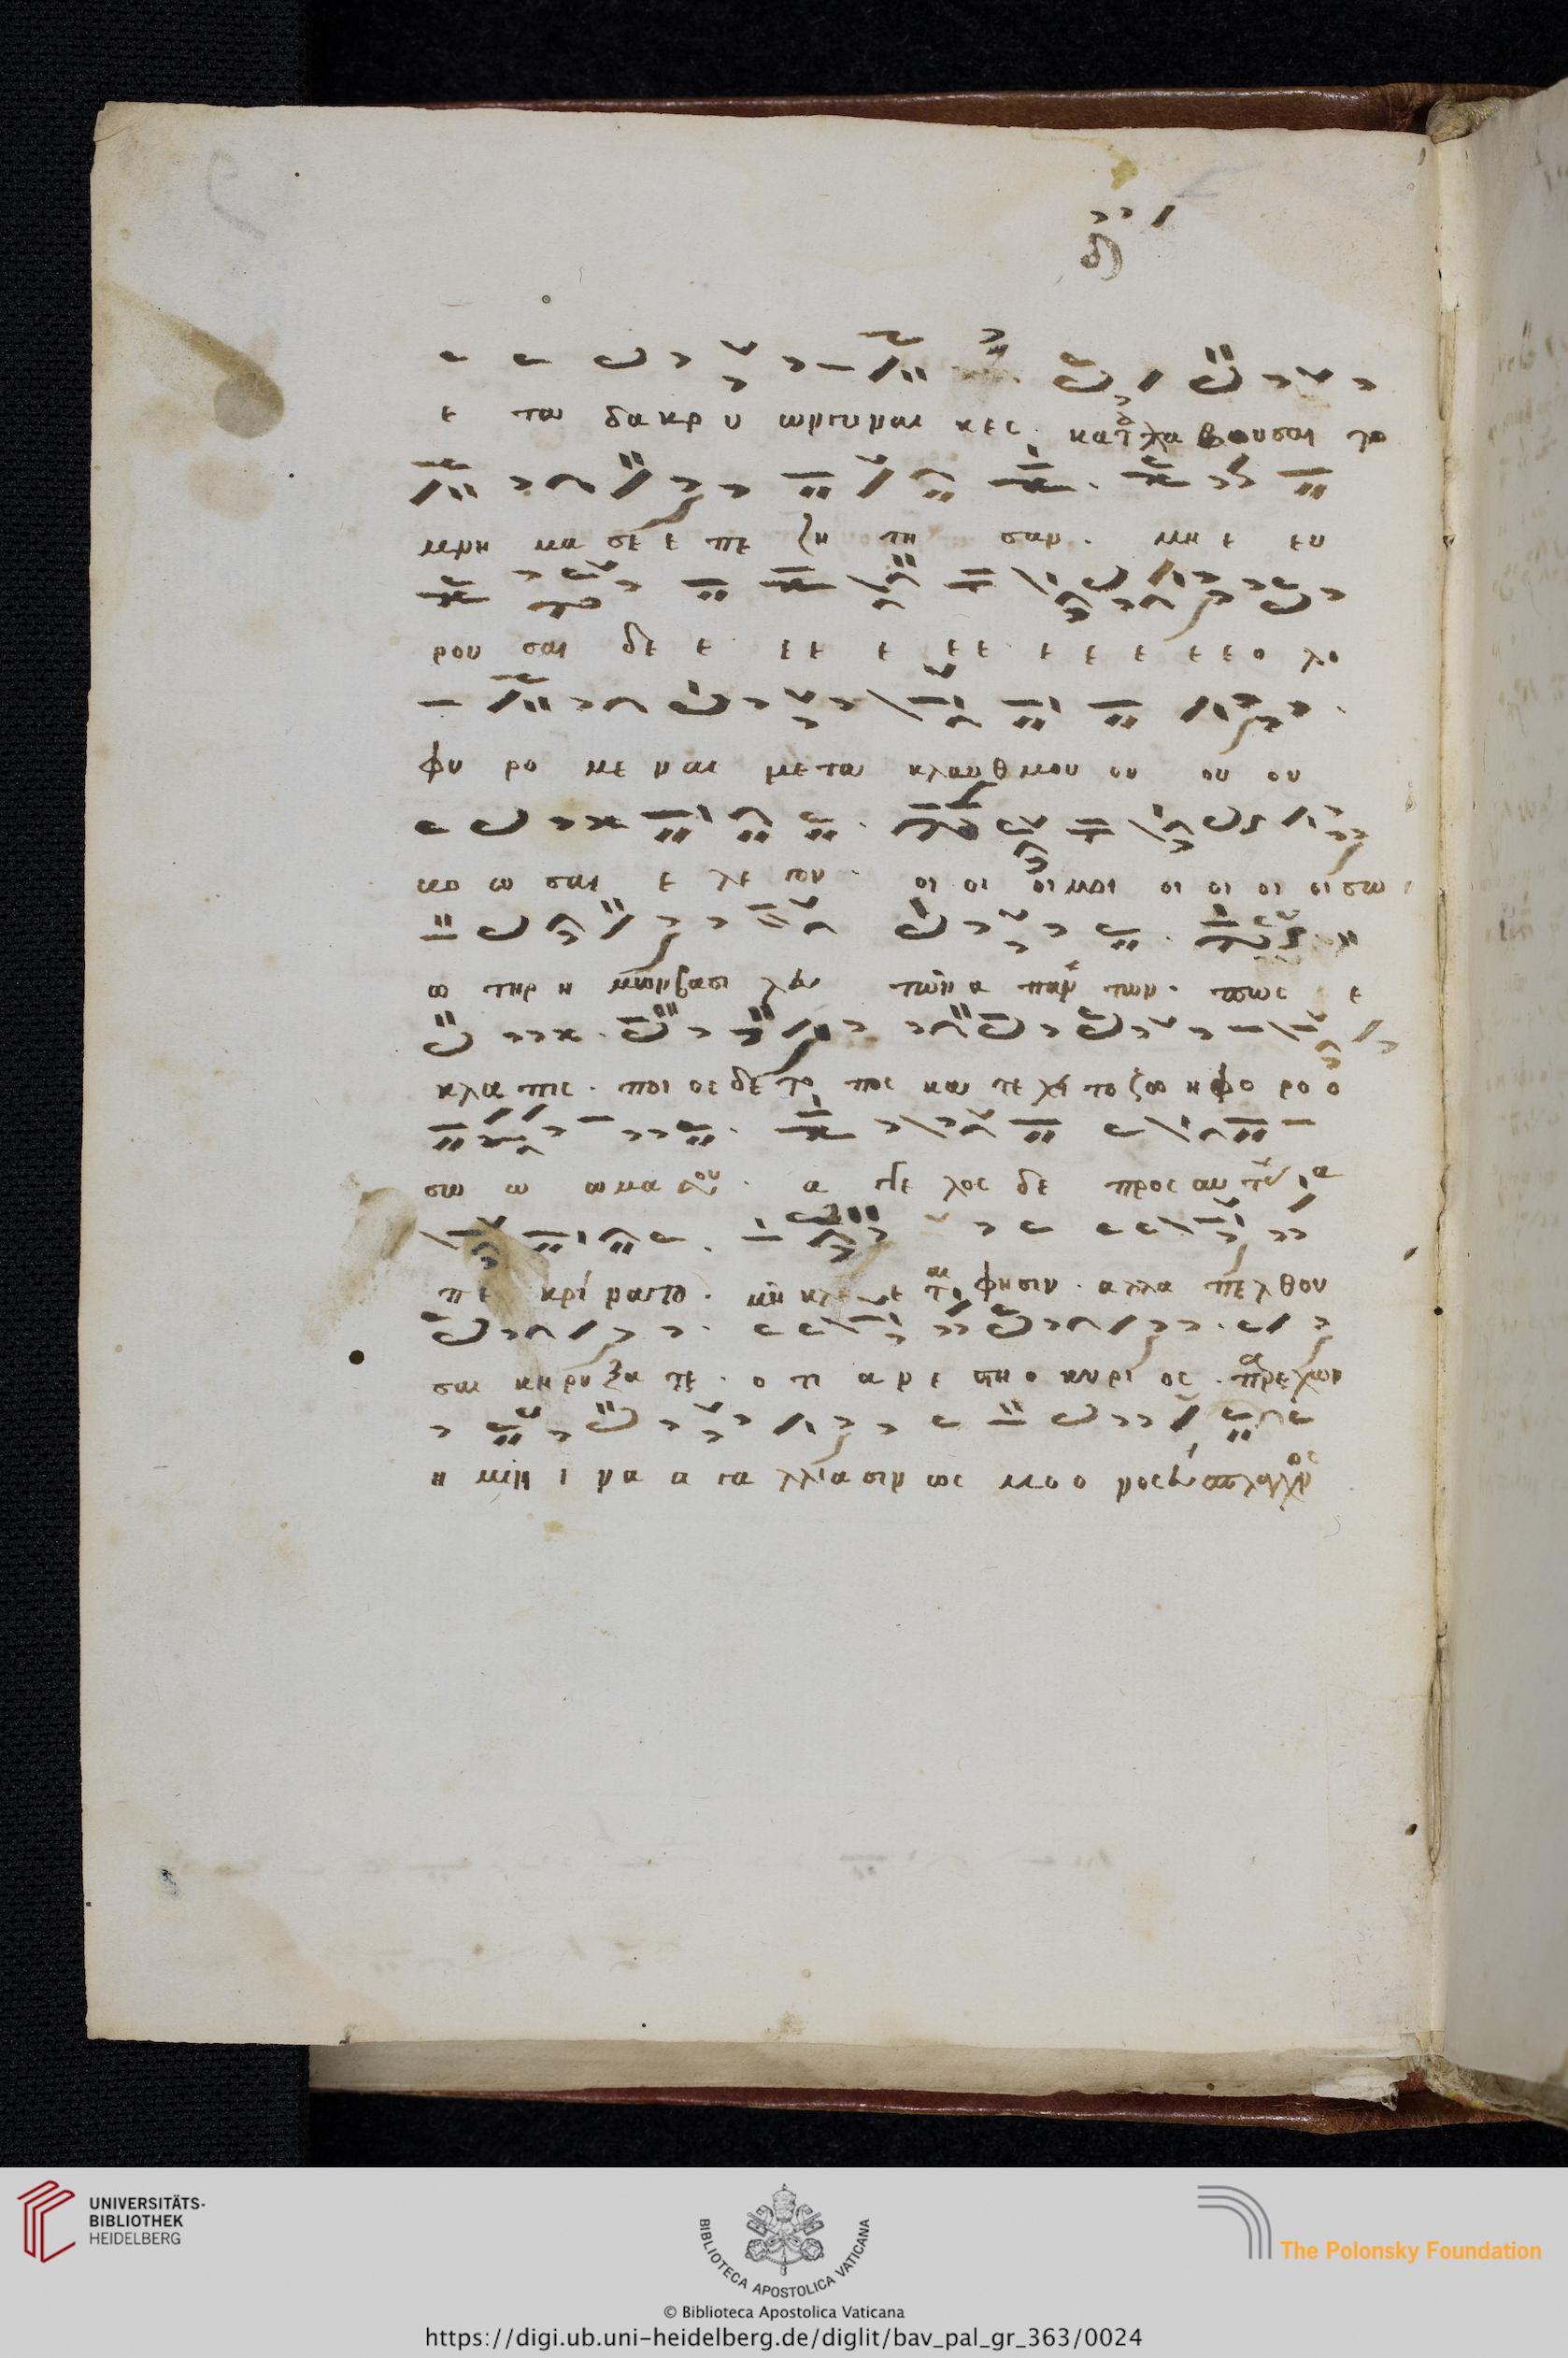 ε τα δα κρ υ ων γυναι κες. κατελαβουσαι το
μνη μα σε ε πε ζη τη σαν. μη ε ευ
ρου σαι δε ε εε ε εε ε ε ε ε ε ο λο
φυ ρο με ναι μετα κλαυθμου ου ου ου
βο ω σαι ε λε γον. οι οι οιμοι οι οι οι οι σω
ω τηρ η μων βασι λευ των α παν των. πως ε
κλα πης. ποι ος δε το πος κα τε χει το ζω ηφο ρο ο
σω ω ωμα σου. α γγε λος δε προς αυ τας α
πε κρί νατο. μη κλαι ε τε φησιν. αλλα πελθου
σαι κηρυξα τε. ο τι α νε στη ο κυρι ος. παρεχων
η μιν ι να α γα λλιασιν ως μο ο νος ευσπλαγχνος
UNIVERSITÄTS-
BIBLIOTHEK
HEIDELBERG
BIBLIOTECA APOSTOLICA VATICANA
The Polonsky Foundation
© Biblioteca Apostolica Vaticana
https://digi.ub.uni-heidelberg.de/diglit/bav_pal_gr_363/0024